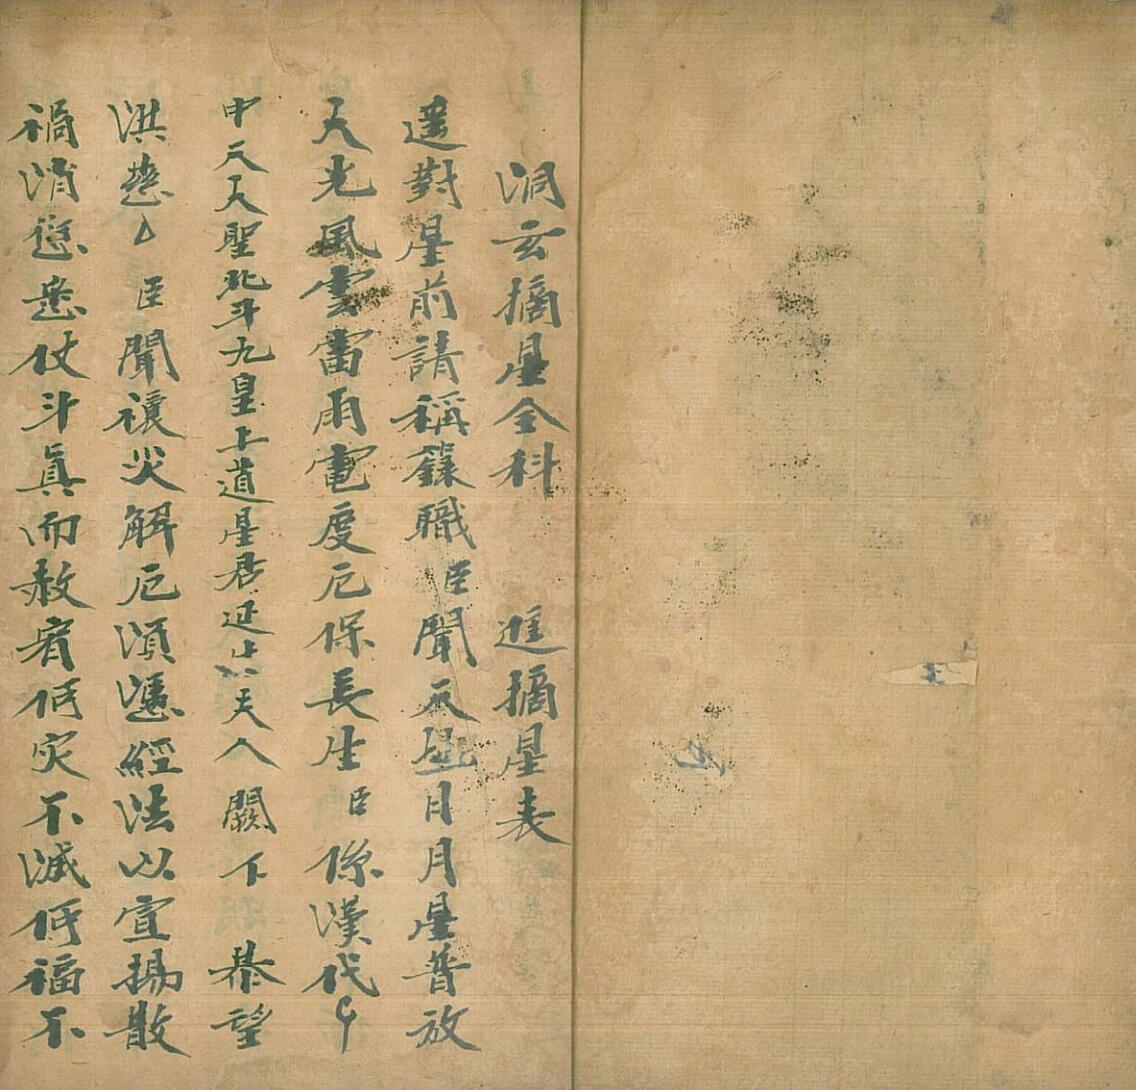 洞玄摘星全科　進摘星表
遥對星前請稱籙職臣聞天地日月星普放
天光風雲雷雨電度厄保長生臣係漢代
中元天聖北斗九皇上道星君延生夫人闕下恭望
洪慈厶臣聞禳災解厄須憑經法以宣揚散
禍消愆悉仗斗真而赦宥何灾不滅何福不